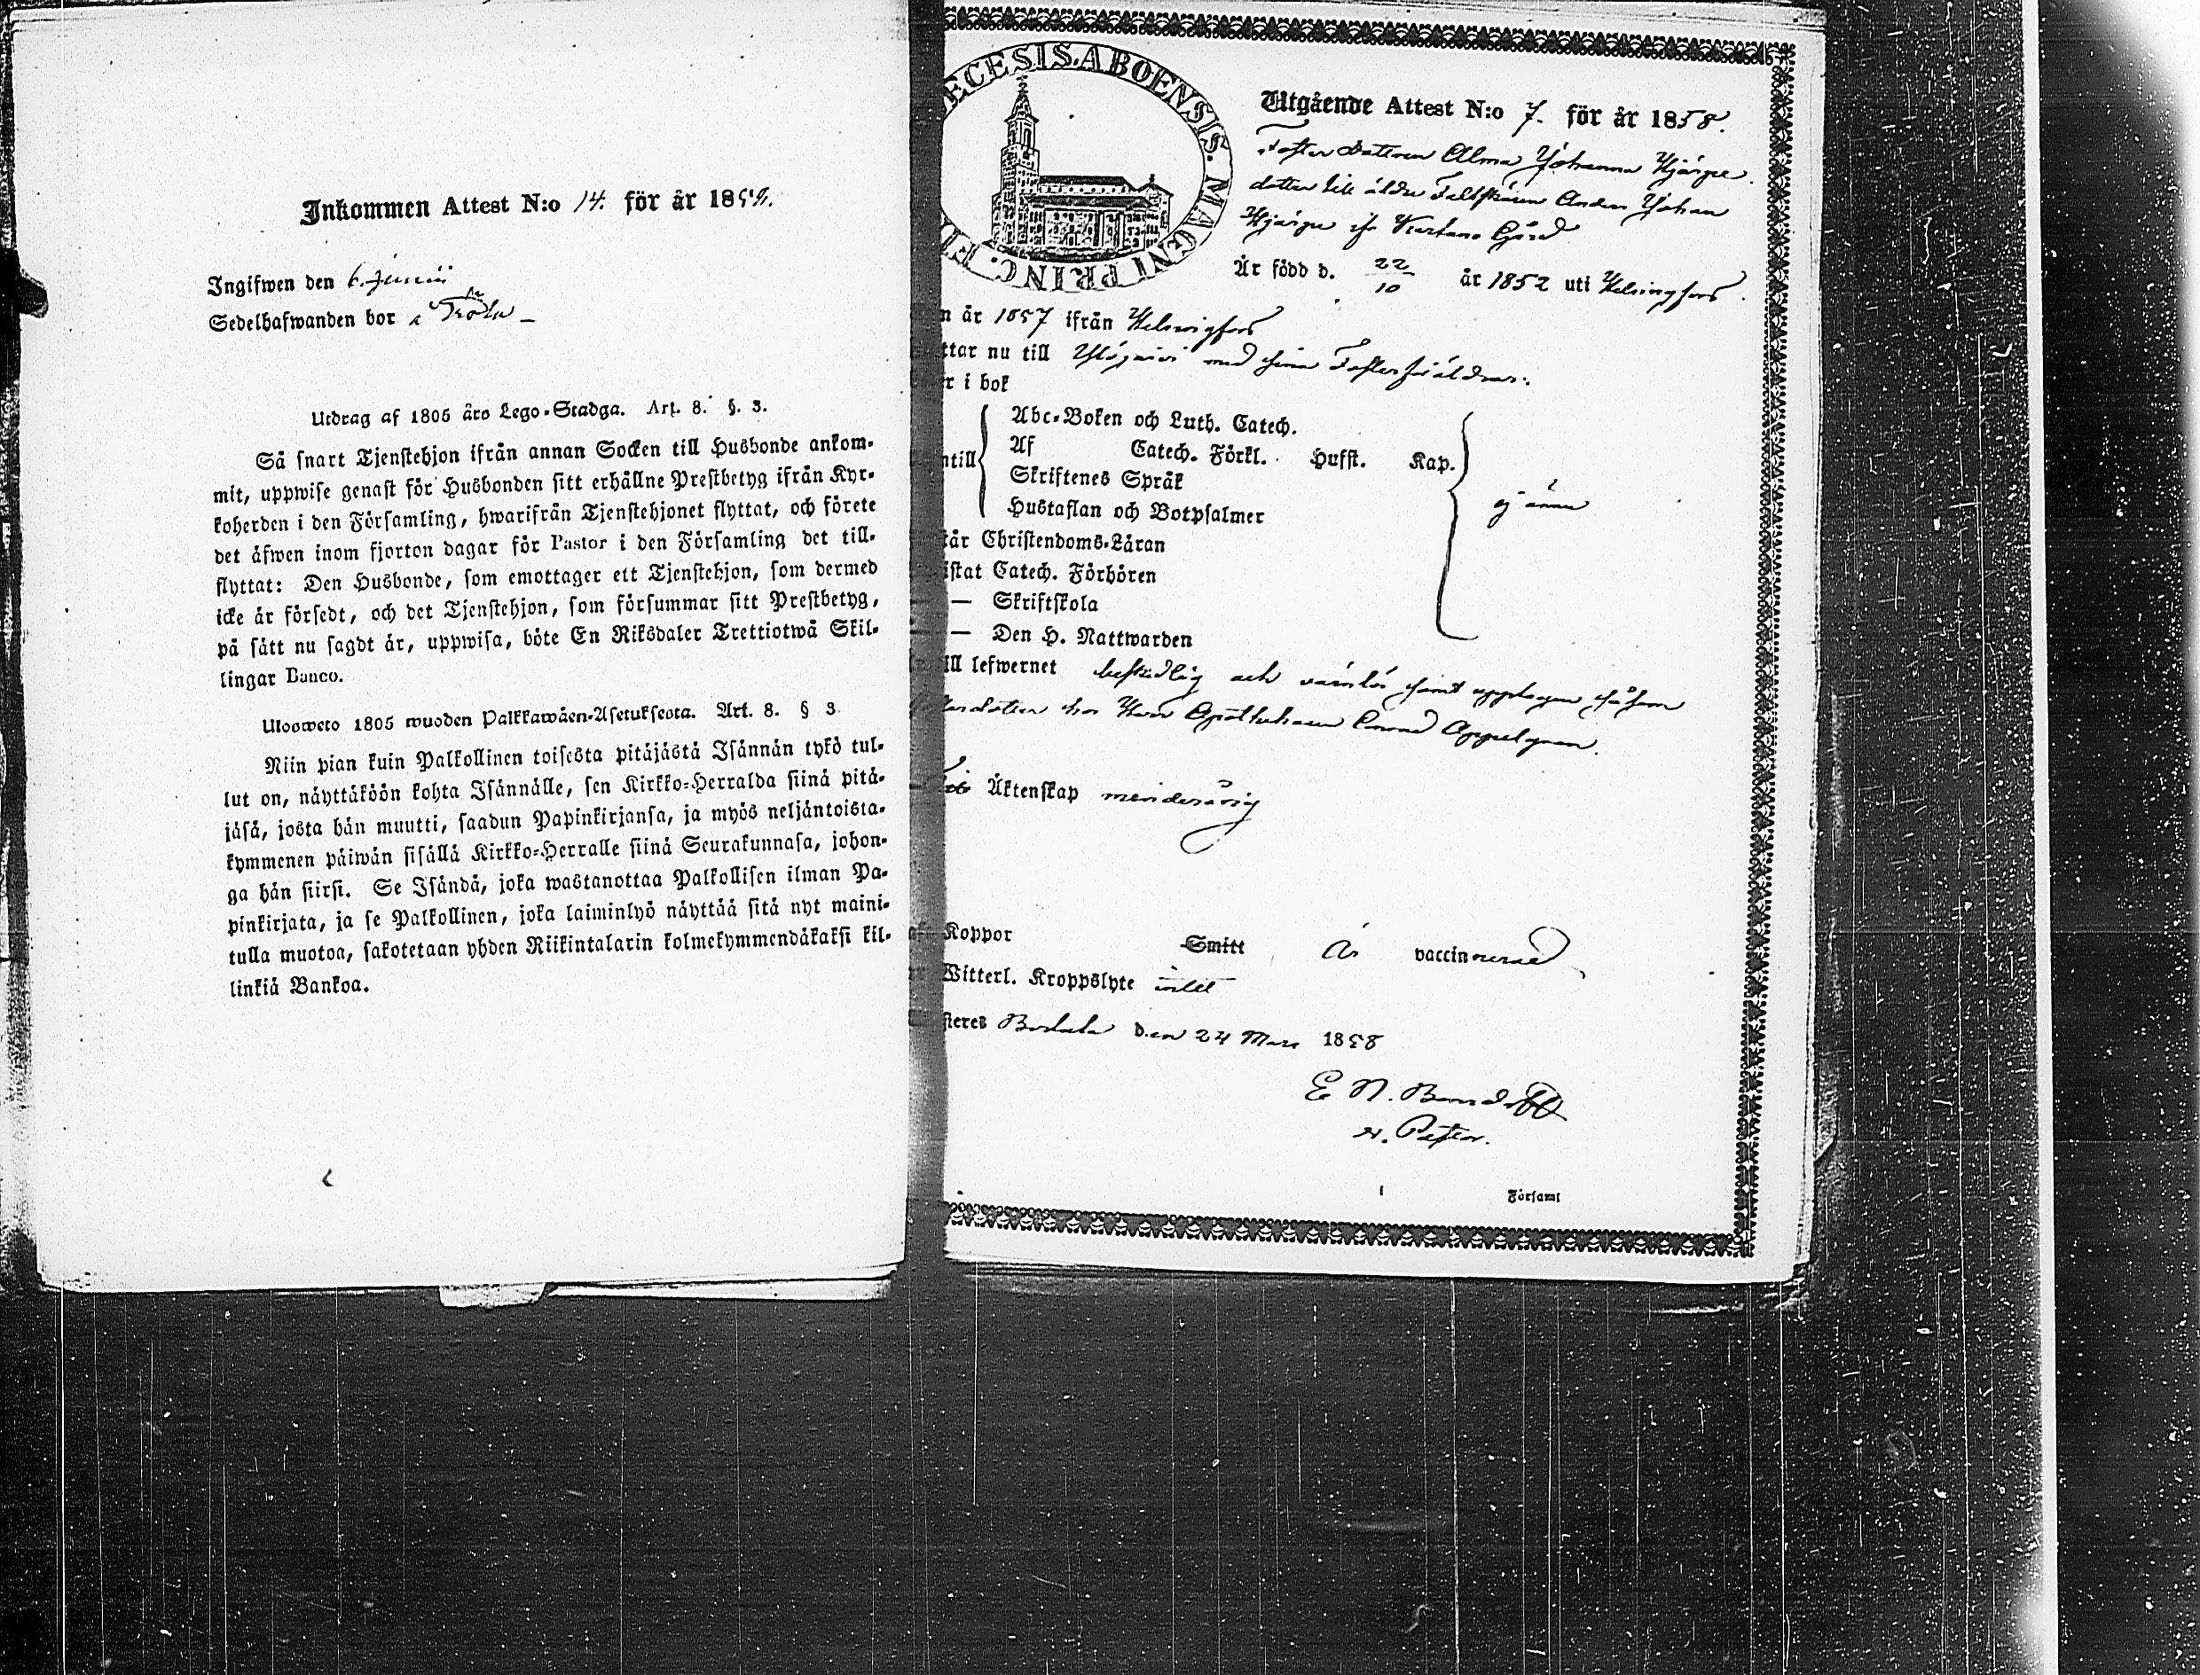 Inkommen Attest N:o 14. för år 185
Ingifwen den 6. Junii
Sedelhafwanden bor
Utdrag af 1805 års Lego-Stadga. Art. 8. §. 3.
Så snart Tjenstehjon ifrån annan Socken till Husbonde ankom-
mit, uppwise genast för Husbonden sitt erhållne Prestbetyg ifrån Kyr-
koherden i den Församling, hwarifrån Tjenstehjonet flyttat, och förete
det äfwen inom fjorton dagar för Pastor i den Församling det till-
flyttat: Den Husbonde, som emottager ett Tjenstehjon, som dermed
icke är försedt, och det Tjenstehjon, som försummar sitt Prestbetyg,
på sätt nu sagdt är, uppwisa, böte En Riksdaler Trettiotwå Skil-
lingar Banco.
Ulosweto 1805 wuoden Palkkawäen-Asetuksesta. Art. 8. § 3
Niin pian kuin Palkollinen toisesta pitäjästä Isännän tykö tul-
lut on, näyttäköön kohta Isännälle, sen Kirkko-Herralda siinä pitä-
jäsä, josta hän muutti, saadun Papinkirjansa, ja myös neljäntoista-
kymmenen päiwän sisällä Kirkko-Herralle siinä Seurakunnasa, johon-
ga hän siirsi. Se Isändä, joka wastanottaa Palkollisen ilman Pa-
pinkirjata, ja se Palkollinen, joka laiminlyö näyttää sitä nyt maini-
tulla muotoa, sakotetaan yhden Riikintalarin kolmekymmendäkaksi kil-
linkiä Bankoa.
ECESIS. ABOENSIS. MAGNI PRINC. FI
Utgående Attest N:o 7. för år 1858.
Foster dottren Alma Johanna Hjärpe
dotter till äldre Fältskären Anders Johan
Hjärpe ifr Kartano Gård
Är född d. 22/10 år 1852 uti Helsingfors.
n år 1857 ifrån Helsingfors
ttar nu till Ylöjärvi med sina Fosterföräldrar.
r i bok
Abc-Boken och Luth. Catech.
ntill Af Catech. Förkl. Husst. Kap.
Skriftenes Språk
Hustaflan och Botpsalmer ej ännu
tår Christendoms-Läran
istat Catech. Förhören
— Skriftskola
— Den H. Nattwarden
ill lefwernet beskedlig och värnlös samt upptagen såsom
dotter hos Herr Apothekaren Conrad Appelgren.
Äktenskap minderårig
Koppor Smitt är vaccinerad
Witterl. Kroppslyte intet
steres den 24 Mars 1858
E N.
Församl